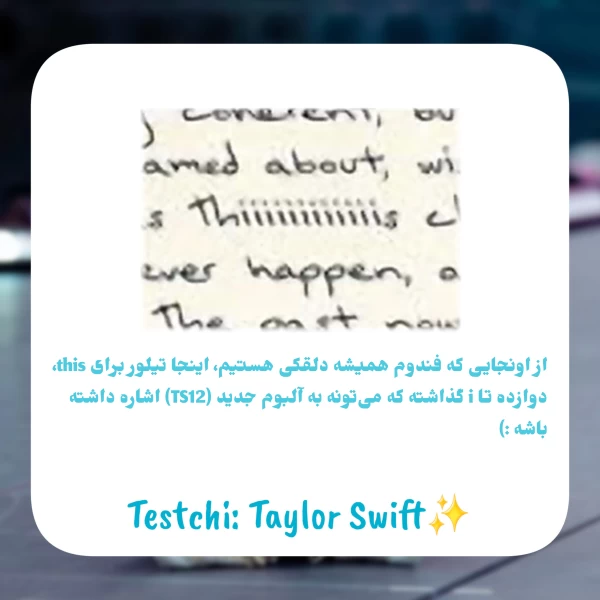 coherent, bu
amed about, wi
s Thiiiiiiiiiiiis cl
ever happen, a
The past now
از اونجایی که فندوم همیشه دلقکی هستیم، اینجا تیلور برای this،
دوازده تا i گذاشته که می‌تونه به آلبوم جدید (TS12) اشاره داشته
باشه :)
Testchi: Taylor Swift✨